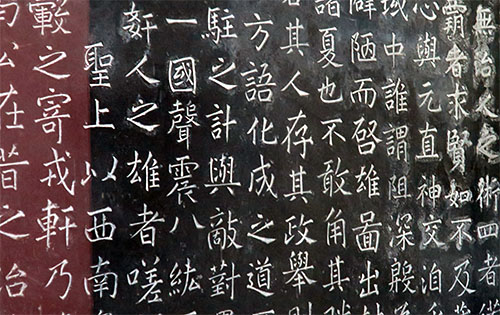 無治人之術四者
霸者求賢如不及
心與元直神交洎
域中誰謂阻深殷
僻陋而啓雄圖出
諸夏也不敢角其
其人存其政舉則
方語化成之道
駐之計與敵對
一國聲震八紘
奸人之雄者嗟
聖上以西南
之寄戎軒乃
公在昔之治